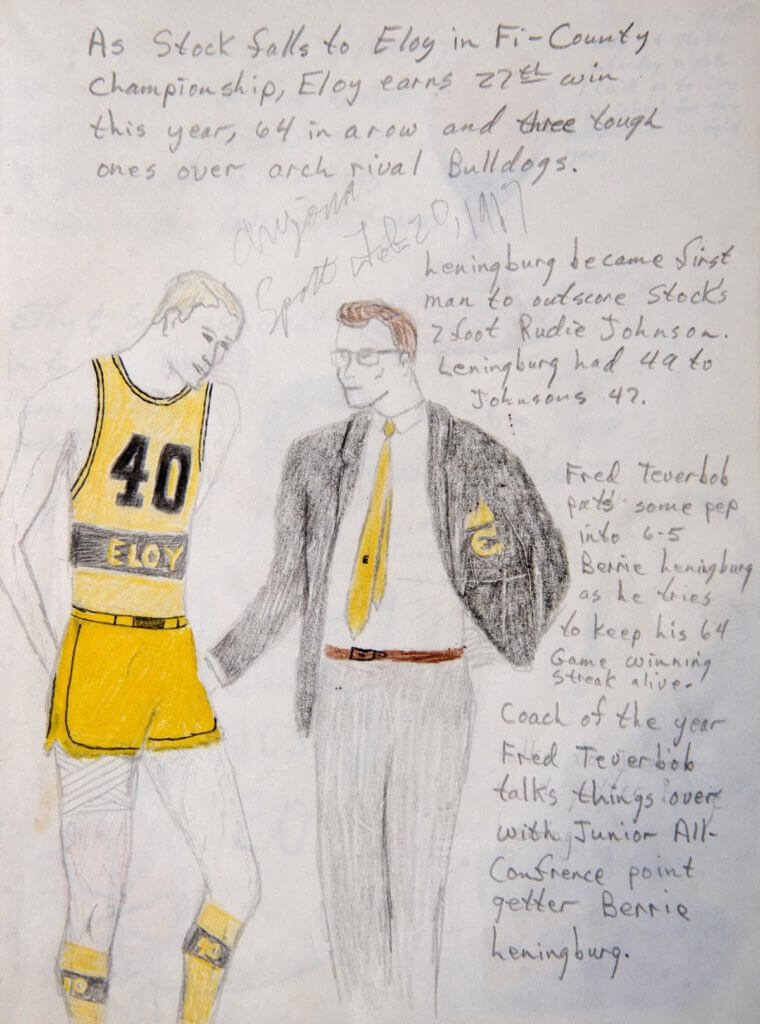 As Stock falls to Eloy in Fi-County
Championship, Eloy earns 27th win
this year, 64 in a row and three tough
ones over arch rival Bulldogs.
Spott Feb. 20, 1967
Leningburg became first
man to outscore Stock's
7 foot Rudie Johnson.
Leningburg had 49 to
Johnsons 47.
40
ELOY
E
E
Fred Teverbob
puts some pep
into 6-5
Berrie Leningburg
as he tries
to keep his 64
Game winning
streak alive.
Coach of the year
Fred Teverbob
talks things over
with Junior All-
Confrence point
getter Berrie
Leningburg.
40
40